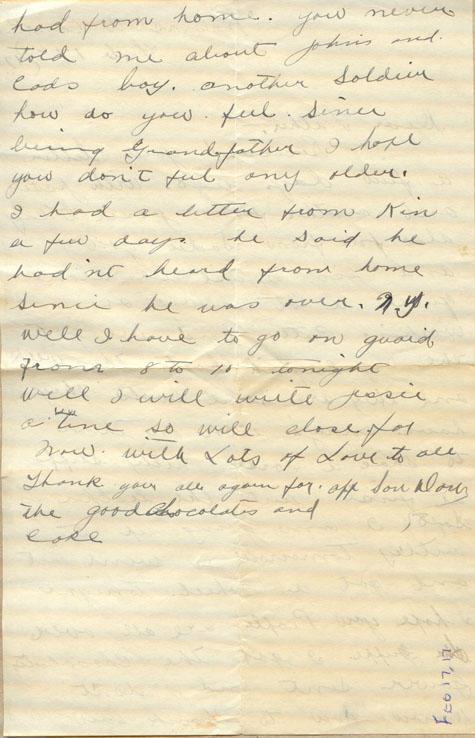 had from home. you never
told me about Johns and
Cads boy. another Soldier
how do you feel. Since
being Grandfather I hope
you don't feel any older.
I had a letter from Kin
a few days. he said he
had'nt heard from home
since he was over. N.Y.
well I have to go on guard
from 8 to 10 tonight
well I will write Jessie
a line so will close for
now. with Lots of Love to all
Thank you all again for. aff Son
the good Chocolates and
cake
Feb 17, 17